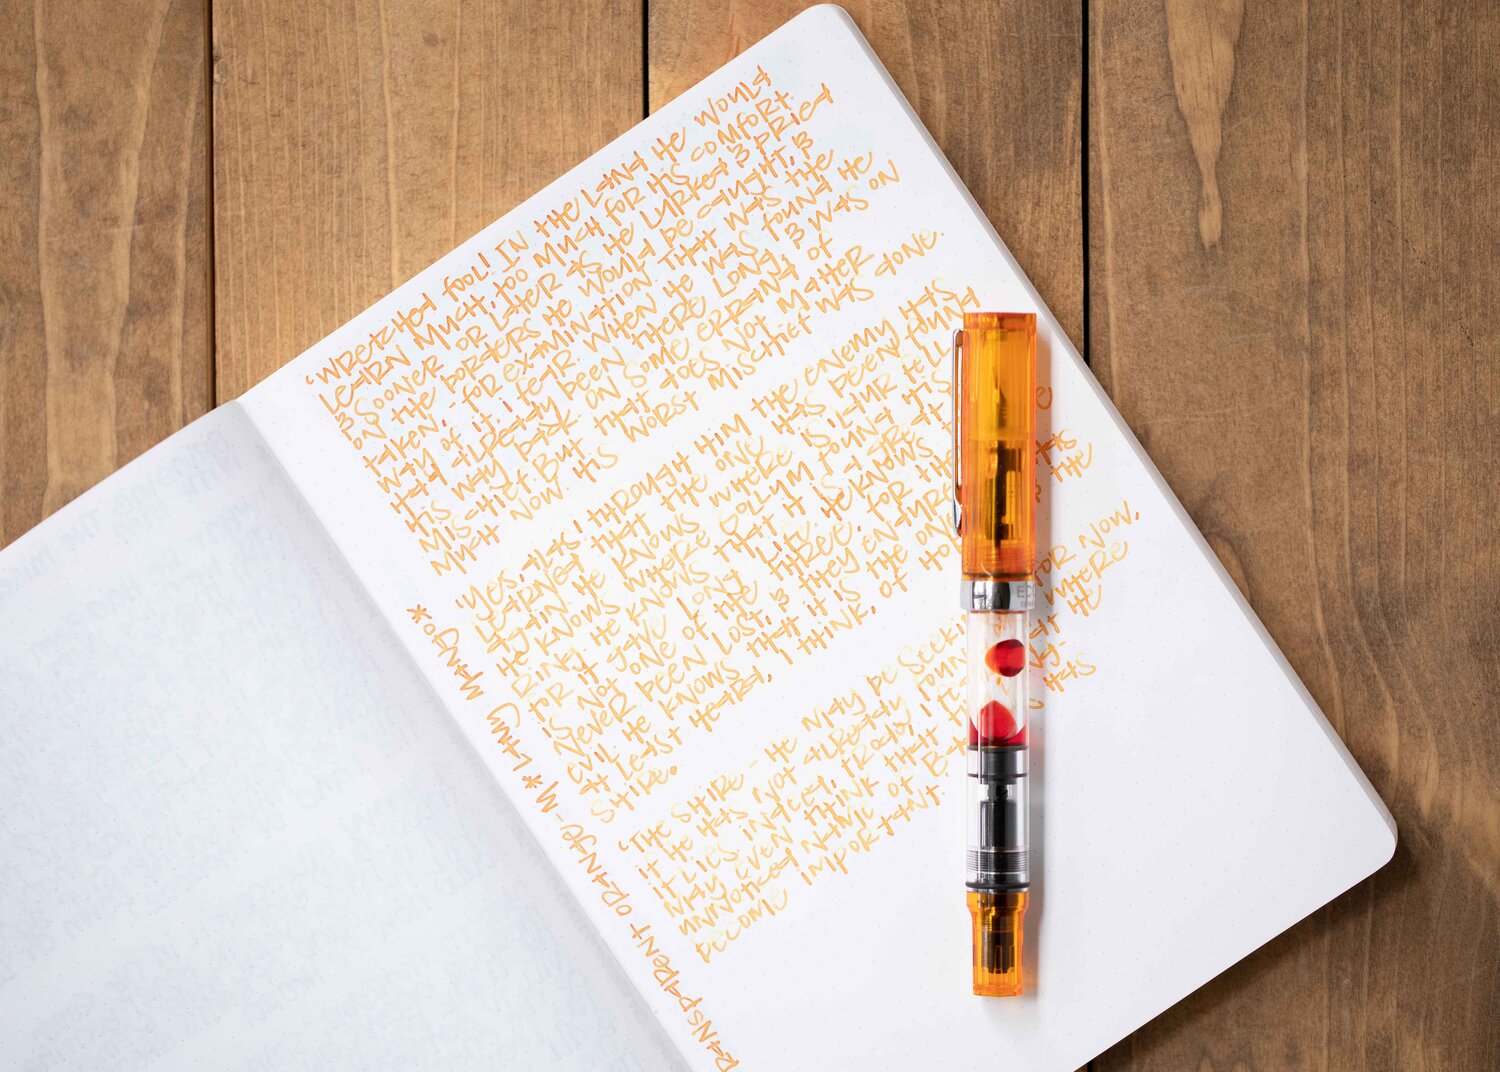 'Wretched fool! In the land he would
learn much, too much for his comfort.
& sooner or later as he lurked & pried
on the borders he would be caught, &
taken - for examination. That was the
way of it, I fear. When he was found he
had already been there long, & was on
his way back. On some errand of
mischief. But that does not matter
much now. His worst mischief was done.
'Yes, alas! through him the enemy has
learned that the one has been found
again. He knows where Isildur fell
He knows where Gollum found his
ring. He knows that it is a great
for it gave long life. He knows
is not one of the three, for the
never been lost, & they endure
evil. He knows that it is the one
at least heard, I think, of the
Shire.
'The Shire - he may be for now,
if he has not already where
it lies. Indeed, Frodo, I he
may even think that
unnoticed name of has
become important.
Orange-M * Lamy Mango *